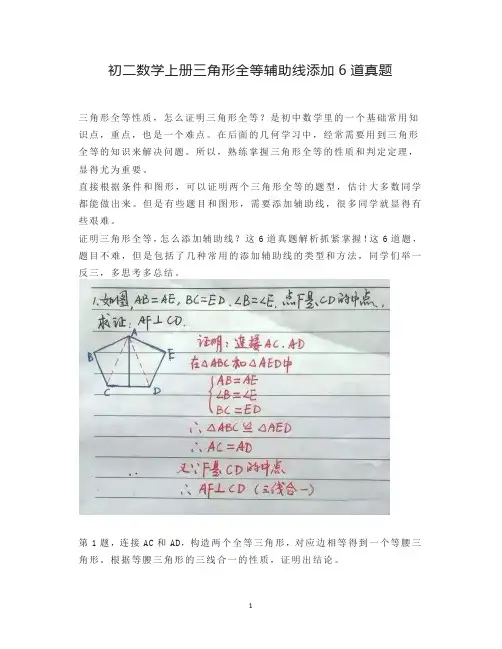 初二数学上册三角形全等辅助线添加 6 道真题
三角形全等性质，怎么证明三角形全等？是初中数学里的一个基础常用知
识点，重点，也是一个难点。在后面的几何学习中，经常需要用到三角形
全等的知识来解决问题。所以，熟练掌握三角形全等的性质和判定定理，
显得尤为重要。
直接根据条件和图形，可以证明两个三角形全等的题型，估计大多数同学
都能做出来。但是有些题目和图形，需要添加辅助线，很多同学就显得有
些艰难。
证明三角形全等，怎么添加辅助线？这 6 道真题解析抓紧掌握！这 6 道题，
题目不难，但是包括了几种常用的添加辅助线的类型和方法，同学们举一
反三，多思考多总结。
1.如图, AB=AE, BC=ED. ∠B=∠E. 点F是CD的中点,
求证: AF⊥CD.
A
B
E
C
D
证明: 连接 AC. AD
在△ABC 和 △AED中
AB=AE
∠B=∠E
BC=ED
∴ △ABC ≌ △AED
∴ AC=AD
又∵F是CD的中点
∴ AF⊥CD (三线合一)
第 1 题，连接 AC 和 AD，构造两个全等三角形，对应边相等得到一个等腰三
角形。根据等腰三角形的三线合一的性质，证明出结论。
1